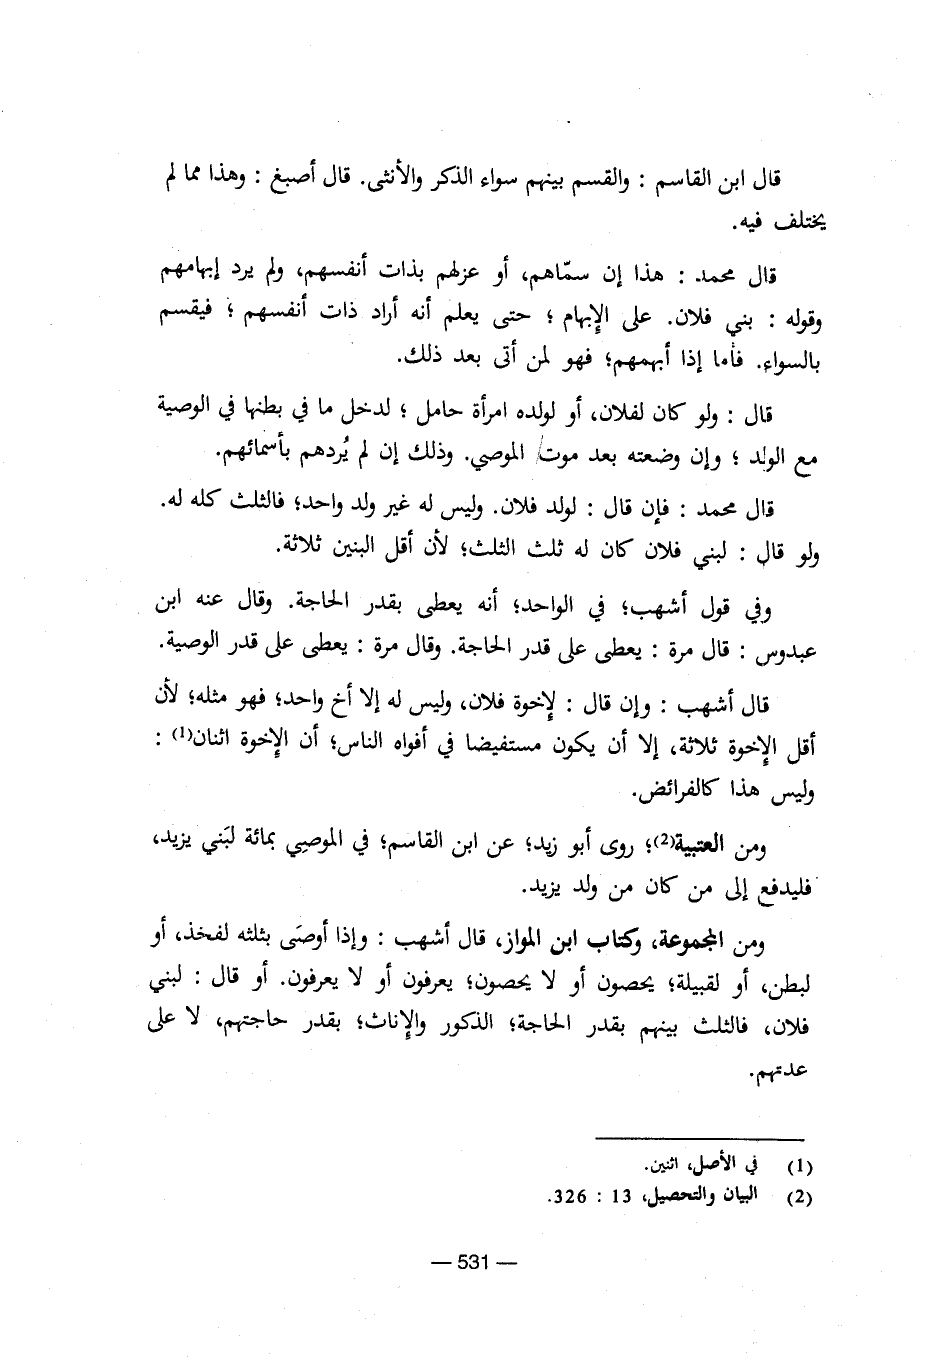 قال ابن القاسم : والقسم بينهم سواء الذكر والأنثى. قال أصبغ : وهذا مما لم
يختلف فيه.
قال محمد : هذا إن سمّاهم، أو عزلهم بذات أنفسهم، ولم يرد إبهامهم
وقوله : بني فلان. على الإبهام ؛ حتى يعلم أنه أراد ذات أنفسهم ؛ فيقسم
بالسواء. فأما إذا أبهمهم؛ فهو لمن أتى بعد ذلك.
قال : ولو كان لفلان، أو لولده امرأة حامل ؛ لدخل ما في بطنها في الوصية
مع الولد ؛ وإن وضعته بعد موت الموصي. وذلك إن لم يُردهم بأسمائهم.
قال محمد : فإن قال : لولد فلان. وليس له غير ولد واحد؛ فالثلث كله له.
ولو قال : لبني فلان كان له ثلث الثلث؛ لأن أقل البنين ثلاثة.
وفي قول أشهب؛ في الواحد؛ أنه يعطى بقدر الحاجة. وقال عنه ابن
عبدوس : قال مرة : يعطى على قدر الحاجة. وقال مرة : يعطى على قدر الوصية.
قال أشهب : وإن قال : لإخوة فلان، وليس له إلا أخ واحد؛ فهو مثله؛ لأن
أقل الإخوة ثلاثة، إلا أن يكون مستفيضا في أفواه الناس؛ أن الإخوة اثنان(1) :
وليس هذا كالفرائض.
ومن العتبية(2)؛ روى أبو زيد؛ عن ابن القاسم؛ في الموصِي بمائة لبَني يزيد،
فليدفع إلى من كان من ولد يزيد.
ومن المجموعة، وكتاب ابن المواز، قال أشهب : وإذا أوصَى بثلثه لفخذ، أو
لبطن، أو لقبيلة؛ يحصون أو لا يحصون؛ يعرفون أو لا يعرفون. أو قال : لبني
فلان، فالثلث بينهم بقدر الحاجة؛ الذكور والإناث؛ بقدر حاجتهم، لا على
عدتهم.
(1) في الأصل، اثنين.
(2) البيان والتحصيل، 13 : 326.
— 531 —